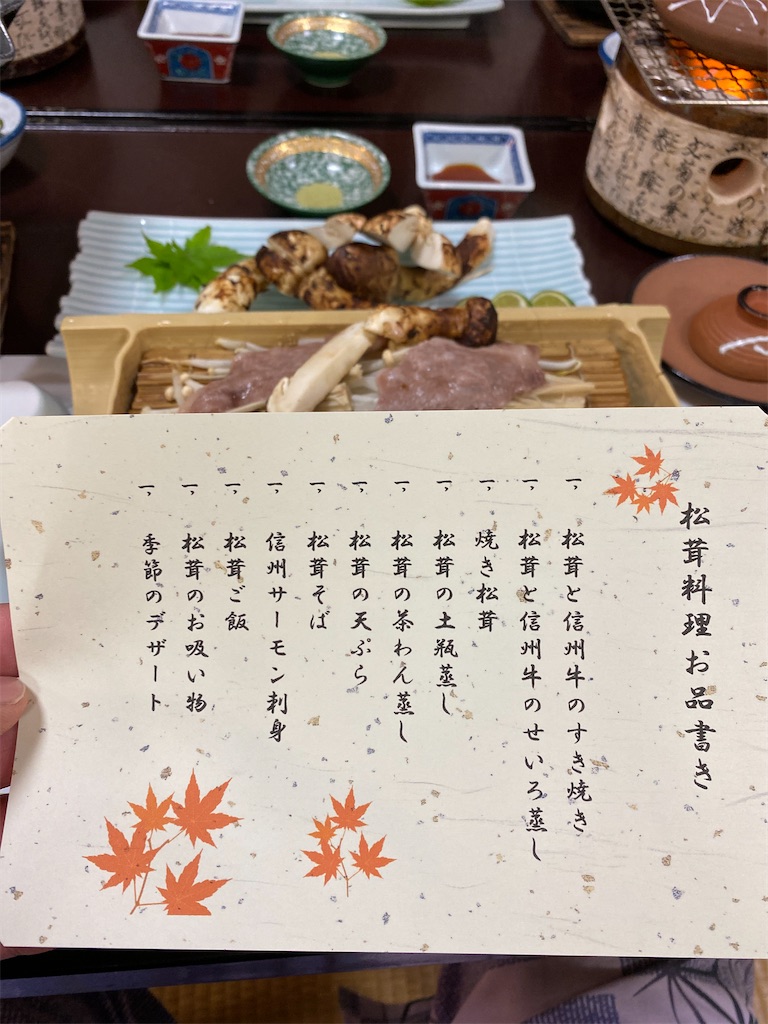 松茸料理お品書き
一、松茸と信州牛のすき焼き
一、松茸と信州牛のせいろ蒸し
一、焼き松茸
一、松茸の土瓶蒸し
一、松茸の茶わん蒸し
一、松茸の天ぷら
一、松茸そば
一、信州サーモン刺身
一、松茸ご飯
一、松茸のお吸い物
一、季節のデザート